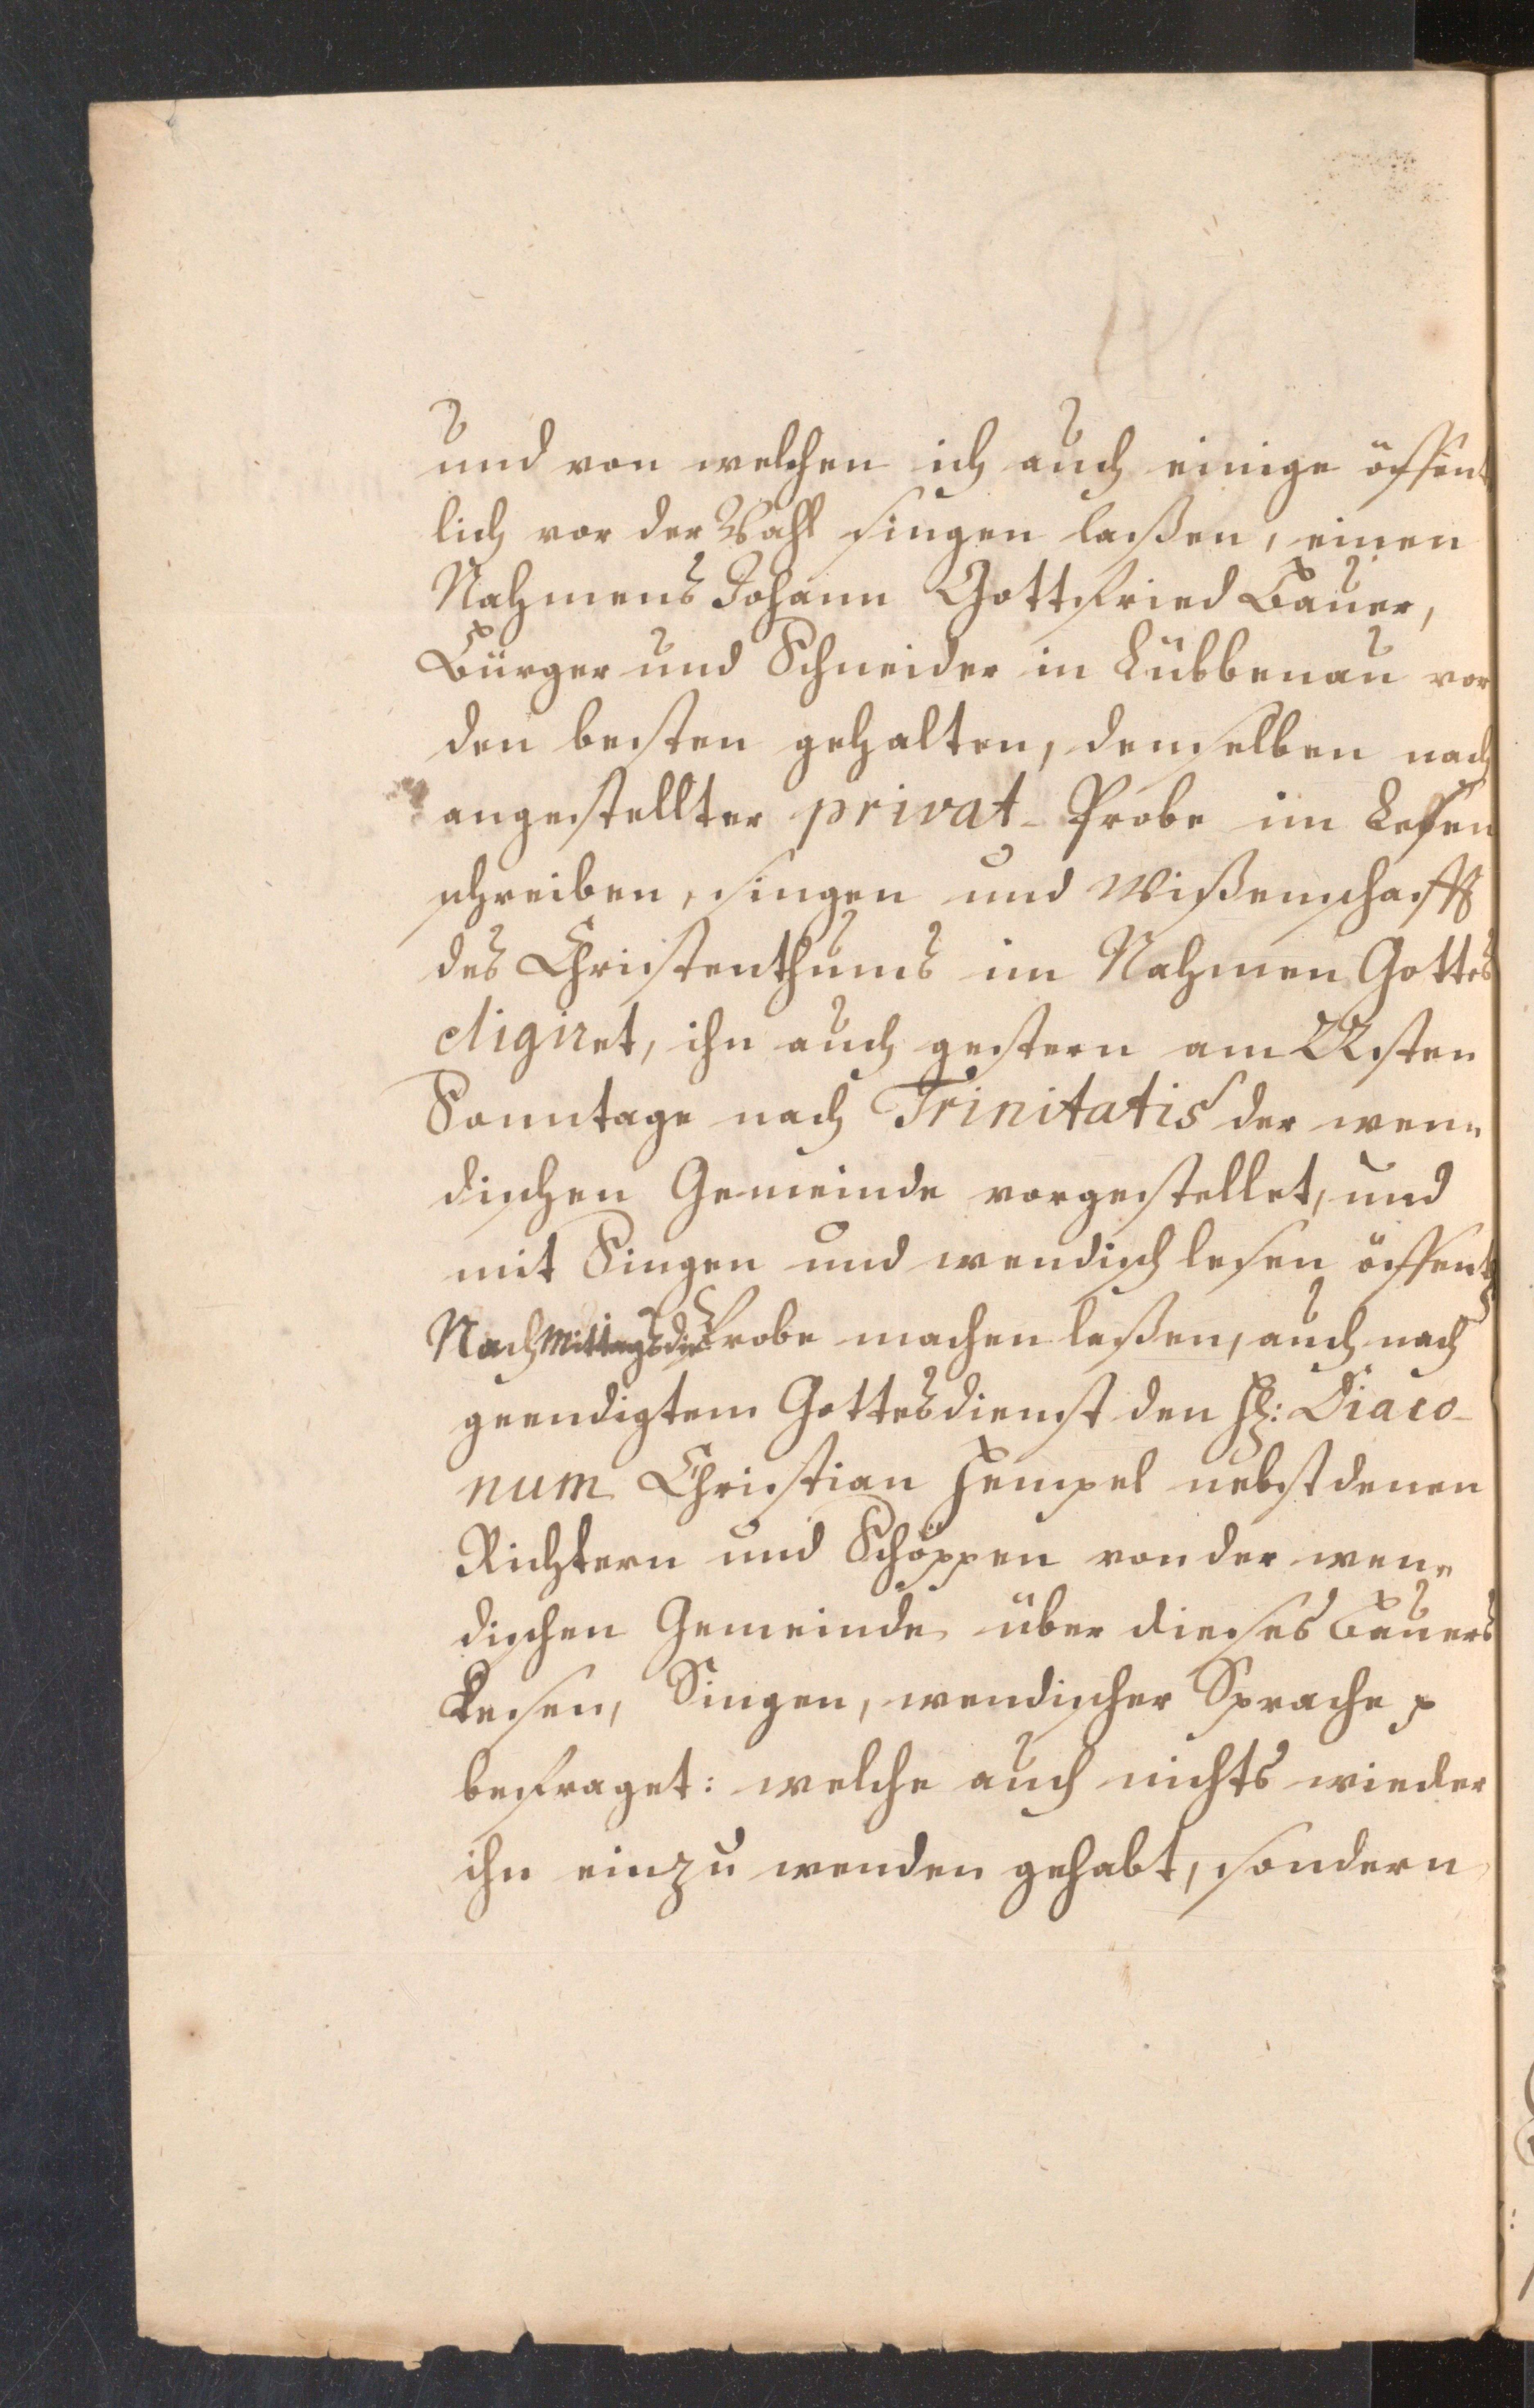 und von welchen ich auch einige öffent
lich vor der Wahl singen laßen, einen
Nahmens Johann Gottfried Bauer,
Bürger und Schneider in Lübbenau vor
den besten gehalten, denselben nach
angestellter privat-Probe im Lesen
schreiben, singen und Wißenschafft
des Christenthums im Nahmen Gottes
eligiret, ihn auch gestern am 22sten
Sonntage nach Trinitatis der wen-
dischen Gemeinde vorgestellet, und
mit Singen und wendisch lesen öffentl.
Nachmittags die Probe machen laßen, auch nach
geendigtem Gottesdienst den H: Diaco-
num Christian Hempel nebst denen
Richtern und Schöppen von der wen-
dischen Gemeinde über dieses Bauers
Lesen, Singen, wendischer Sprache p
befraget: welche auch nichts wieder
ihn einzu wenden gehabt, sondern